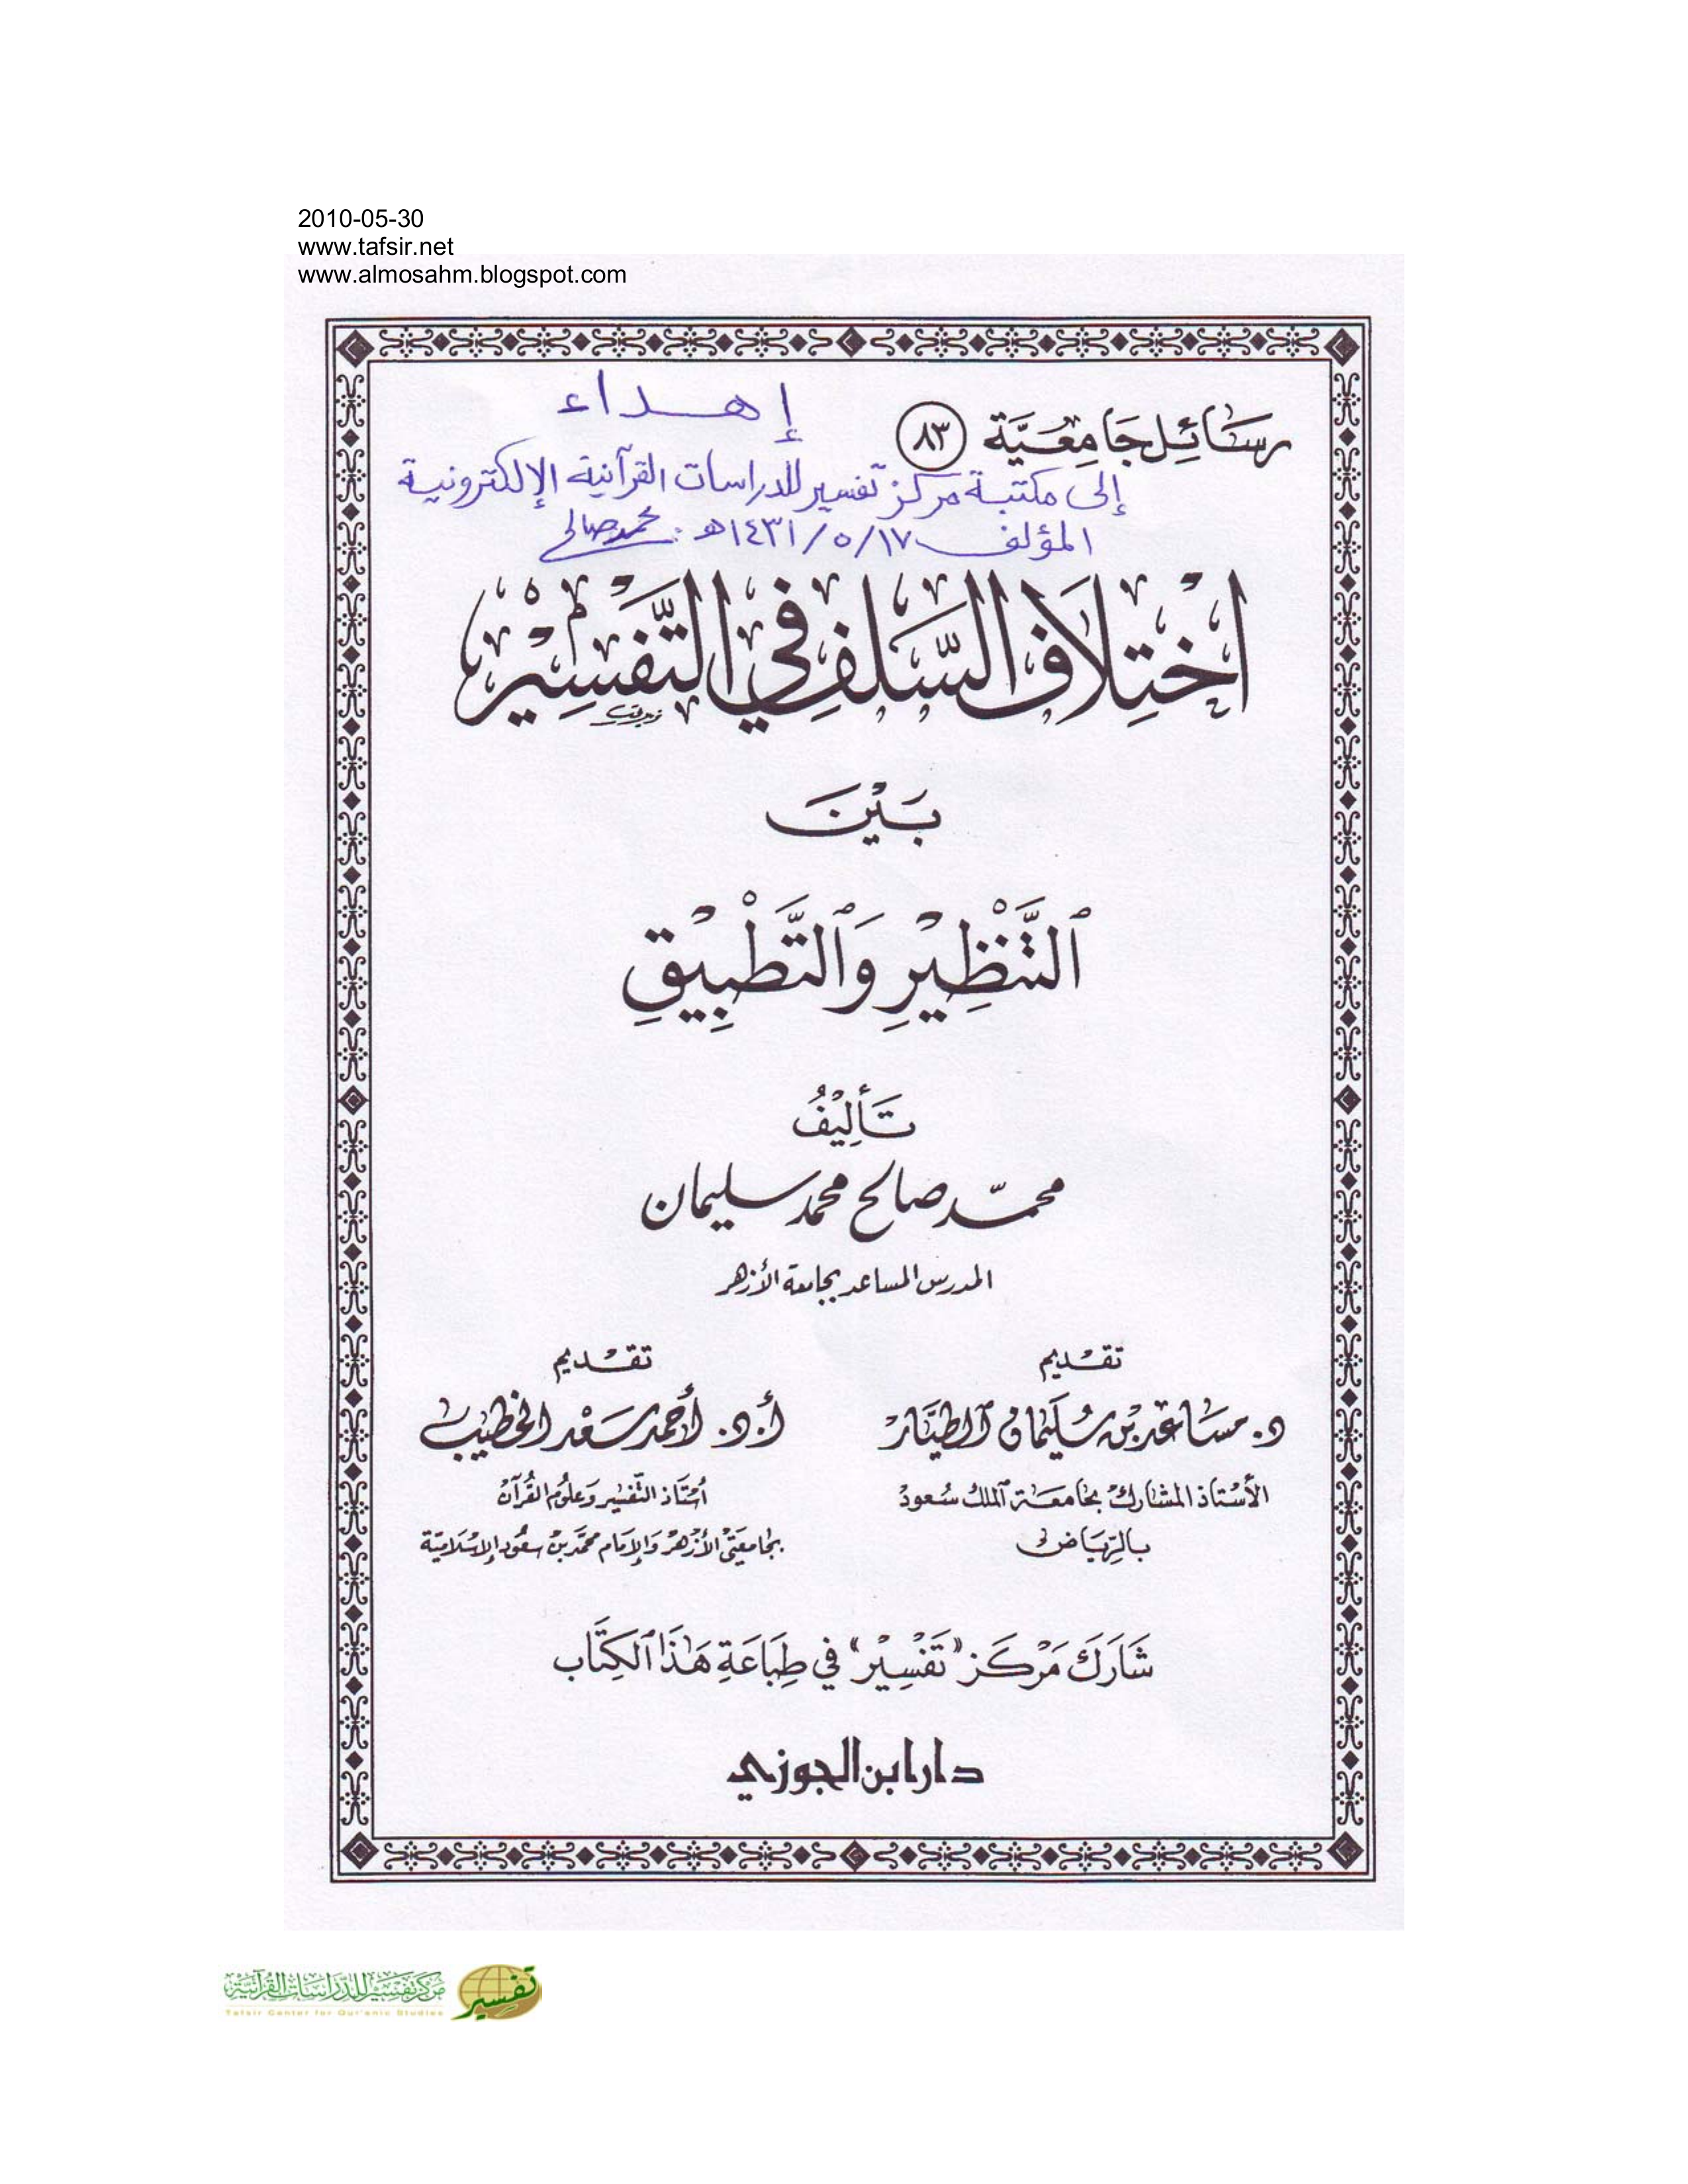 2010-05-30
www.tafsir.net
www.almosahm.blogspot.com
رسائل جامعية ٨٣
إهداء
إلى مكتبة مركز تفسير للدراسات القرآنية الإلكترونية
المؤلف ١٧/٥/١٤٣١هـ: محمد صالح
اخْتِلَافُ السَّلَفِ فِي التَّفْسِيْرِ
بَيْنَ
ٱلتَّنْظِيْرِ وَٱلتَّطْبِيْقِ
تَأْلِيْفُ
محمّد صالح محمد سليمان
المدرس المساعد بجامعة الأزهر
تقديم
د. مساعد بن سليمان الطيار
الأستاذ المشارك بجامعة الملك سعود
بالرياض
تقديم
أ. د. أحمد سعد الخطيب
أستاذ التفسير وعلوم القرآن
بجامعتي الأزهر والإمام محمد بن سعود الإسلامية
شَارَكَ مَرْكَز "تَفْسِيْر" في طِبَاعَةِ هَٰذَا ٱلكِتَاب
دار ابن الجوزي
مركز تفسير للدراسات القرآنية
Tafsir Center for Qur'anic Studies
تفسير